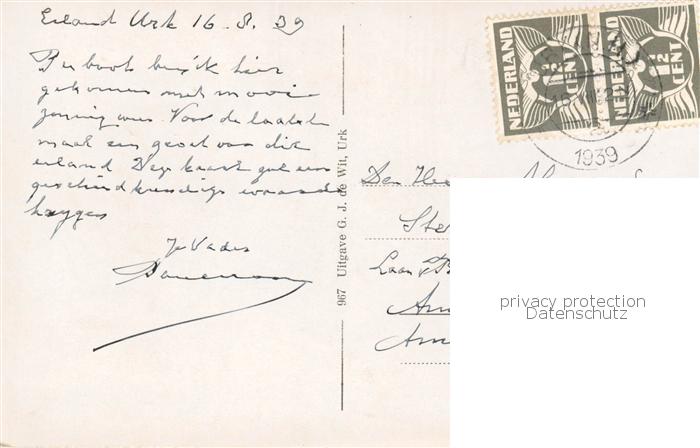 Eiland Urk 16.8.39
Per boot ben ik hier
gekomen met mooie
Voor de laatste
maal een groet van dit
eiland Deze kaart
geschiedkundige waarde
krygen
Je Vader
967 Uitgave G. J. de Wit, Urk
NEDERLAND
1½ CENT
NEDERLAND
1½ CENT
1939
Den Heer
Ste
Laan
Am
Am
privacy protection
Datenschutz